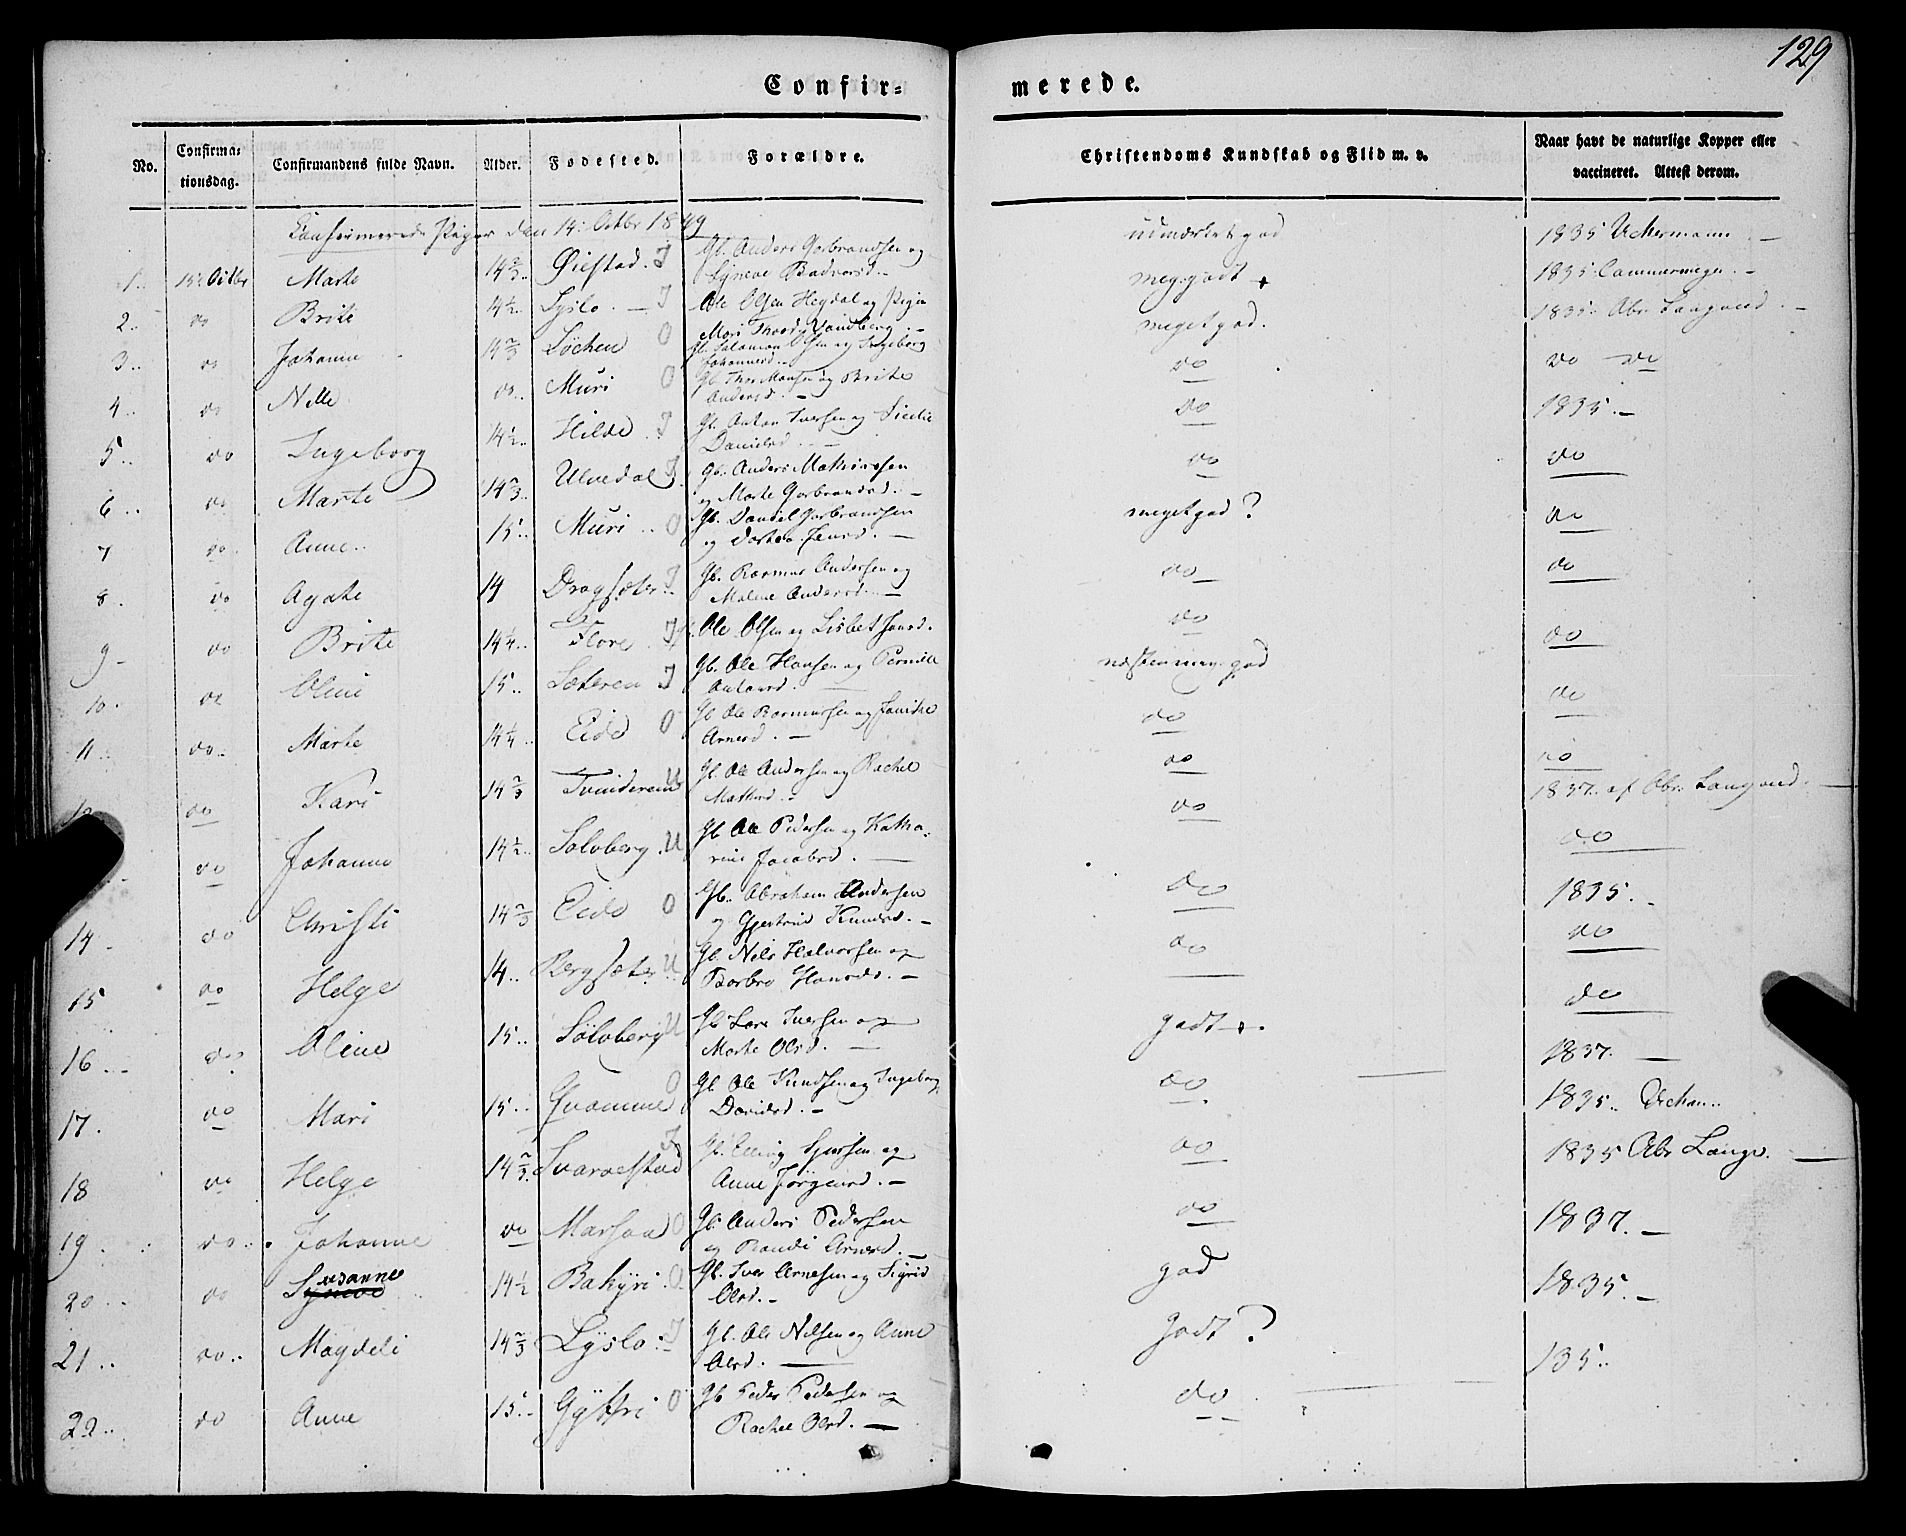 129
Confir= merede.
No. Confirma- tionsdag. Confirmandens fulde Navn. Alder. Fødested. Forældre. Christendoms Kundskab og Flid m. v. Naar havt de naturlige Kopper eller vaccineret. Attest derom.
Confirmerede Piger den 14 Octbr 1849
1.. 15 Octbr Marte 14 2/3.. Øiestad. I Gb. Anders Gorbrandsen og Syneve udmærket god 1835 Uchermann
2.. do Brite 14 1/2.. Lyslo. I Ole Olsen Hegdal og Pigen meg: godt + 1835
3.. do Johanne 14 2/3 Løchen O Gb. Salomon Olsen og Ingeborg Johannesd. meget god. 1835
4.. do Nille do.. Muri O Gb. Thor Monsen og Brite Andersd. do do do
5.. do Ingeborg 14 1/2.. Hilde. I Gb. Anton Iversen og Sicelie Danielsd. do 1835.
6.. do Marte 14 2/3.. Ulvedal I Gb. Anders Mathiassen og Marte Gorbrandsd. do do
7 do Anne.. 15.. Muri.. O Gb. Daniel Gorbrandsen og Dorthea Jensd. meget god? do
8. do Agate 14 Dragsæter I Gb. Rasmus Andersen og Malene Andersd. do do
9 do Brite 14 1/4.. Flore I Ole Olsen og Lisbet Jonsd. do do
10. do Oline 15.. Sæteren I Gb. Ole Hansen og Pernille Antonsd. næsten meg. god do
11. do.. Marte 14 1/4.. Eide O Gb Ole Rasmussen og Jonikke Arnesd. do do
do Kari 14 2/3 Tvinderein U Gb. Ole Andersen og Rachel Mathisd. do 1837. af Abr. Langved.
do Johanne 14 1/2.. Solvberg. U Gb. Ole Pedersen og Katharine Jacobsd. do do
14 do Christi 14 2/3 Eide O Gb. Abraham Andersen og Gjertrud Knudsd. do 1835.
15 do Helge 14.. Bergsæter U Gb. Nils Halvorsen og Barbro Hansd. do do
16 do Oline 15.. Sølvberg U Gb Lars Iversen og Marte Olsd. godt +. do
17. do Mari 15.. Qvamme O Gb. Ole Knudsen og Ingeborg Davidsd. do 1837.
18 do Helge 14 2/3. Svarvestad I Gb. Elling Sjursen og Anne Jörgensd. do 1835 Abr Langv.
19. do.. Johanne do Marsaa O Gb. Anders Pedersen og Randi Arnesd. do 1837.
20.. do Syneve Susanne 14 1/2 Bahyri. O Gb. Iver Arnesen og Sigrid Olsd. god 1835.
21.. do.. Magdeli 14 2/3 Lyslo. I Gb. Ole Nilsen og Anne Olsd. Godt? 135..
22.. do Anne 15.. Gyttri O Gb Peder Pedersen og Rachel Olsd. do